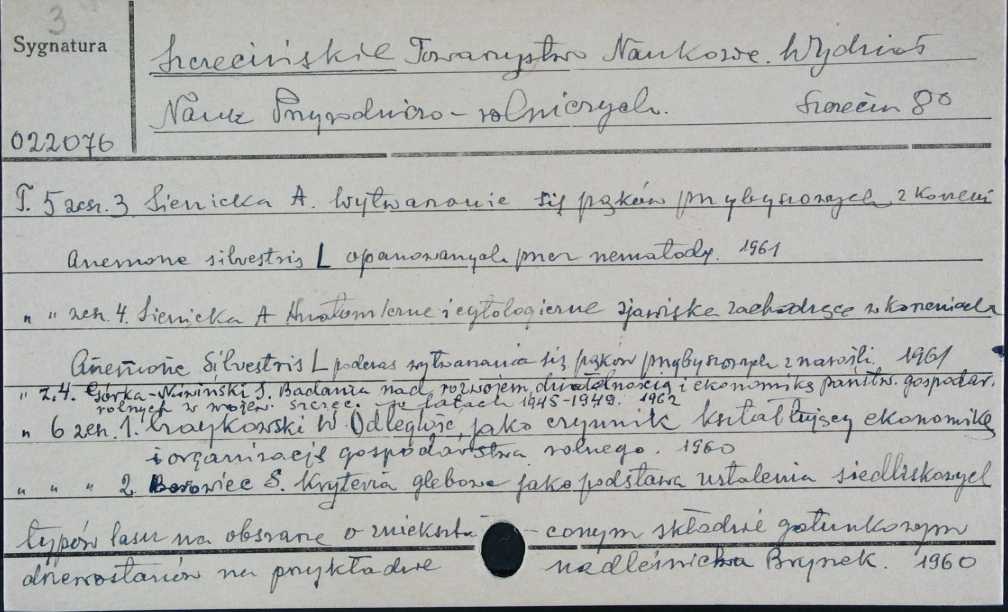 3
Sygnatura
Szczecińskie Towarzystwo Naukowe. Wydział
Nauk Przyrodniczo-rolniczych. Szczecin 8°
022076
T. 5 zesz. 3 Sienicka A. Wytwarzanie się pąków przybyszowych z korzeni
Anemone silvestris L opanowanych przez nematody. 1961
" " zesz. 4. Sienicka A Anatomiczne i cytologiczne zjawiska zachodzące w korzeniach
Anemone Silvestris L podczas wytwarzania się pąków przybyszowych z narośli. 1961
" z. 4. Górka-Niwiński S. Badania nad rozwojem, działalnością i ekonomiką państw. gospodar.
rolnych w wojew. szczec. w latach 1945-1949. 1962
" 6 zesz. 1. W. Odległość, jako czynnik kształtujący ekonomikę
i organizację gospodarstwa rolnego. 1960
" " " 2. Borowiec S. Kryteria glebowe jako podstawa ustalenia siedliskowych
typów lasu na obszarze o zniekształ-conym składzie gatunkowym
drzewostanów na przykładzie nadleśnictwa Brynek. 1960